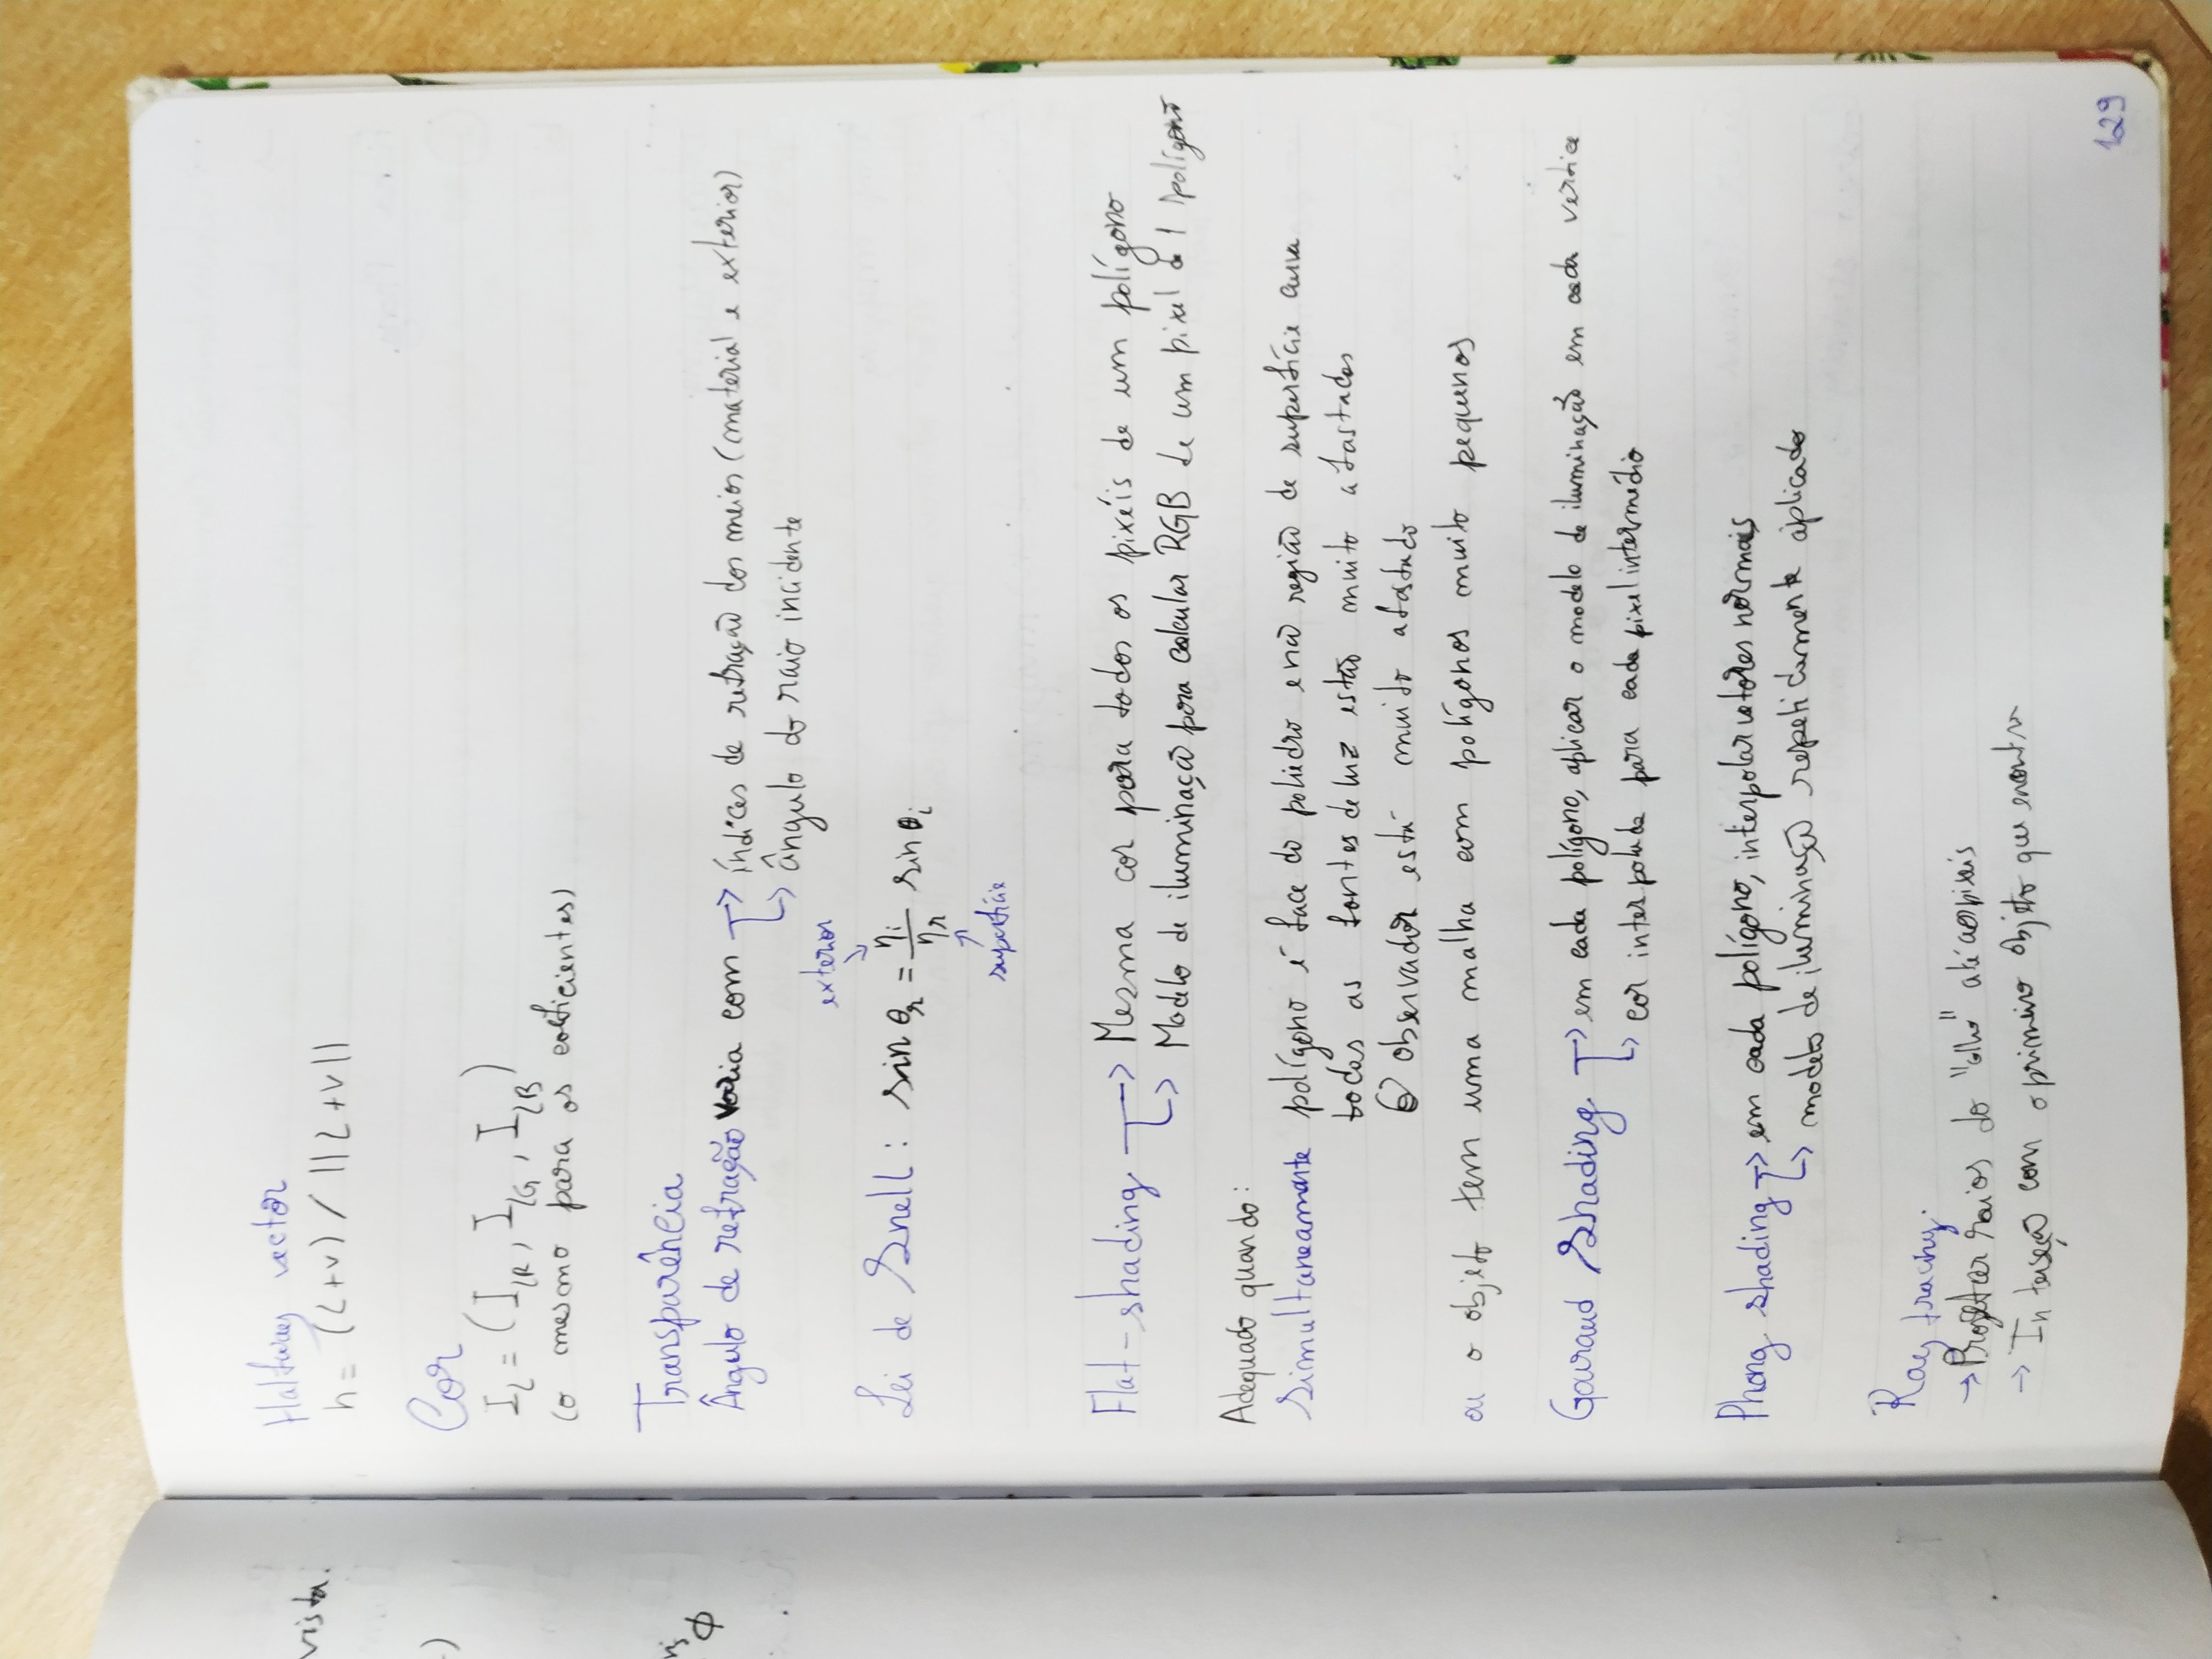 vista.
Halfway vector
h = (L+v) / ||L+v||
)
Cor
I_L = (I_LR, I_LG, I_LB)
(o mesmo para os coeficientes)
Transparência
ϕ
Ângulo de refração varia com → índices de refração dos meios (material e exterior)
→ ângulo do raio incidente
exterior
↓
Lei de Snell: sin θr = ηi / ηr sin θi
↑
superfície
Flat-shading → Mesma cor para todos os pixéis de um polígono
→ Modelo de iluminação para calcular RGB de um pixel de 1 polígono
Adequado quando:
Simultaneamente polígono é face do poliedro e não região de superfície curva
todas as fontes de luz estão muito afastadas
O observador está muito afastado
ou o objeto tem uma malha com polígonos muito pequenos
Gouraud Shading → em cada polígono, aplicar o modelo de iluminação em cada vértice
→ cor interpolada para cada pixel intermédio
Phong shading → em cada polígono, interpolar vetores normais
→ modelo de iluminação repetidamente aplicado
Ray tracing.
→ Projetar raios do "olho" até aos pixéis
→ Interseção com o primeiro objeto que encontra
129